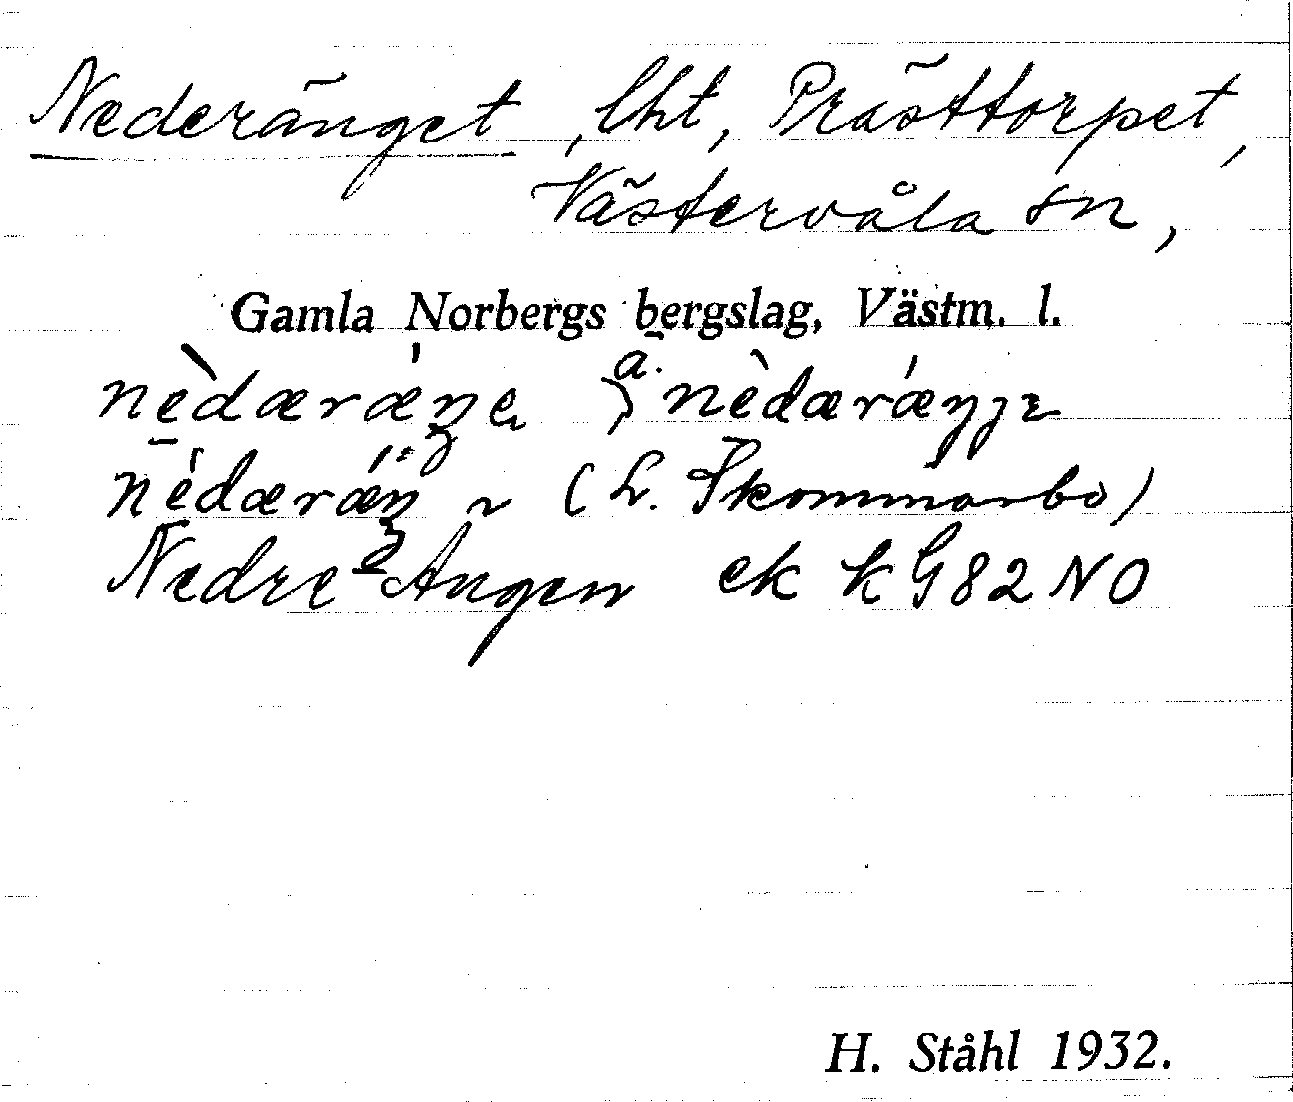 Nederänget, lht, Prästtorpet,
Västervåla sn,
Gamla Norbergs bergslag, Västm. l.
nèdæráŋe ā. nèdæráŋɟɛ
nèdæráŋ ~ (L. Skommarbo)
Nedre Ängen ek kG82NO
H. Ståhl 1932.